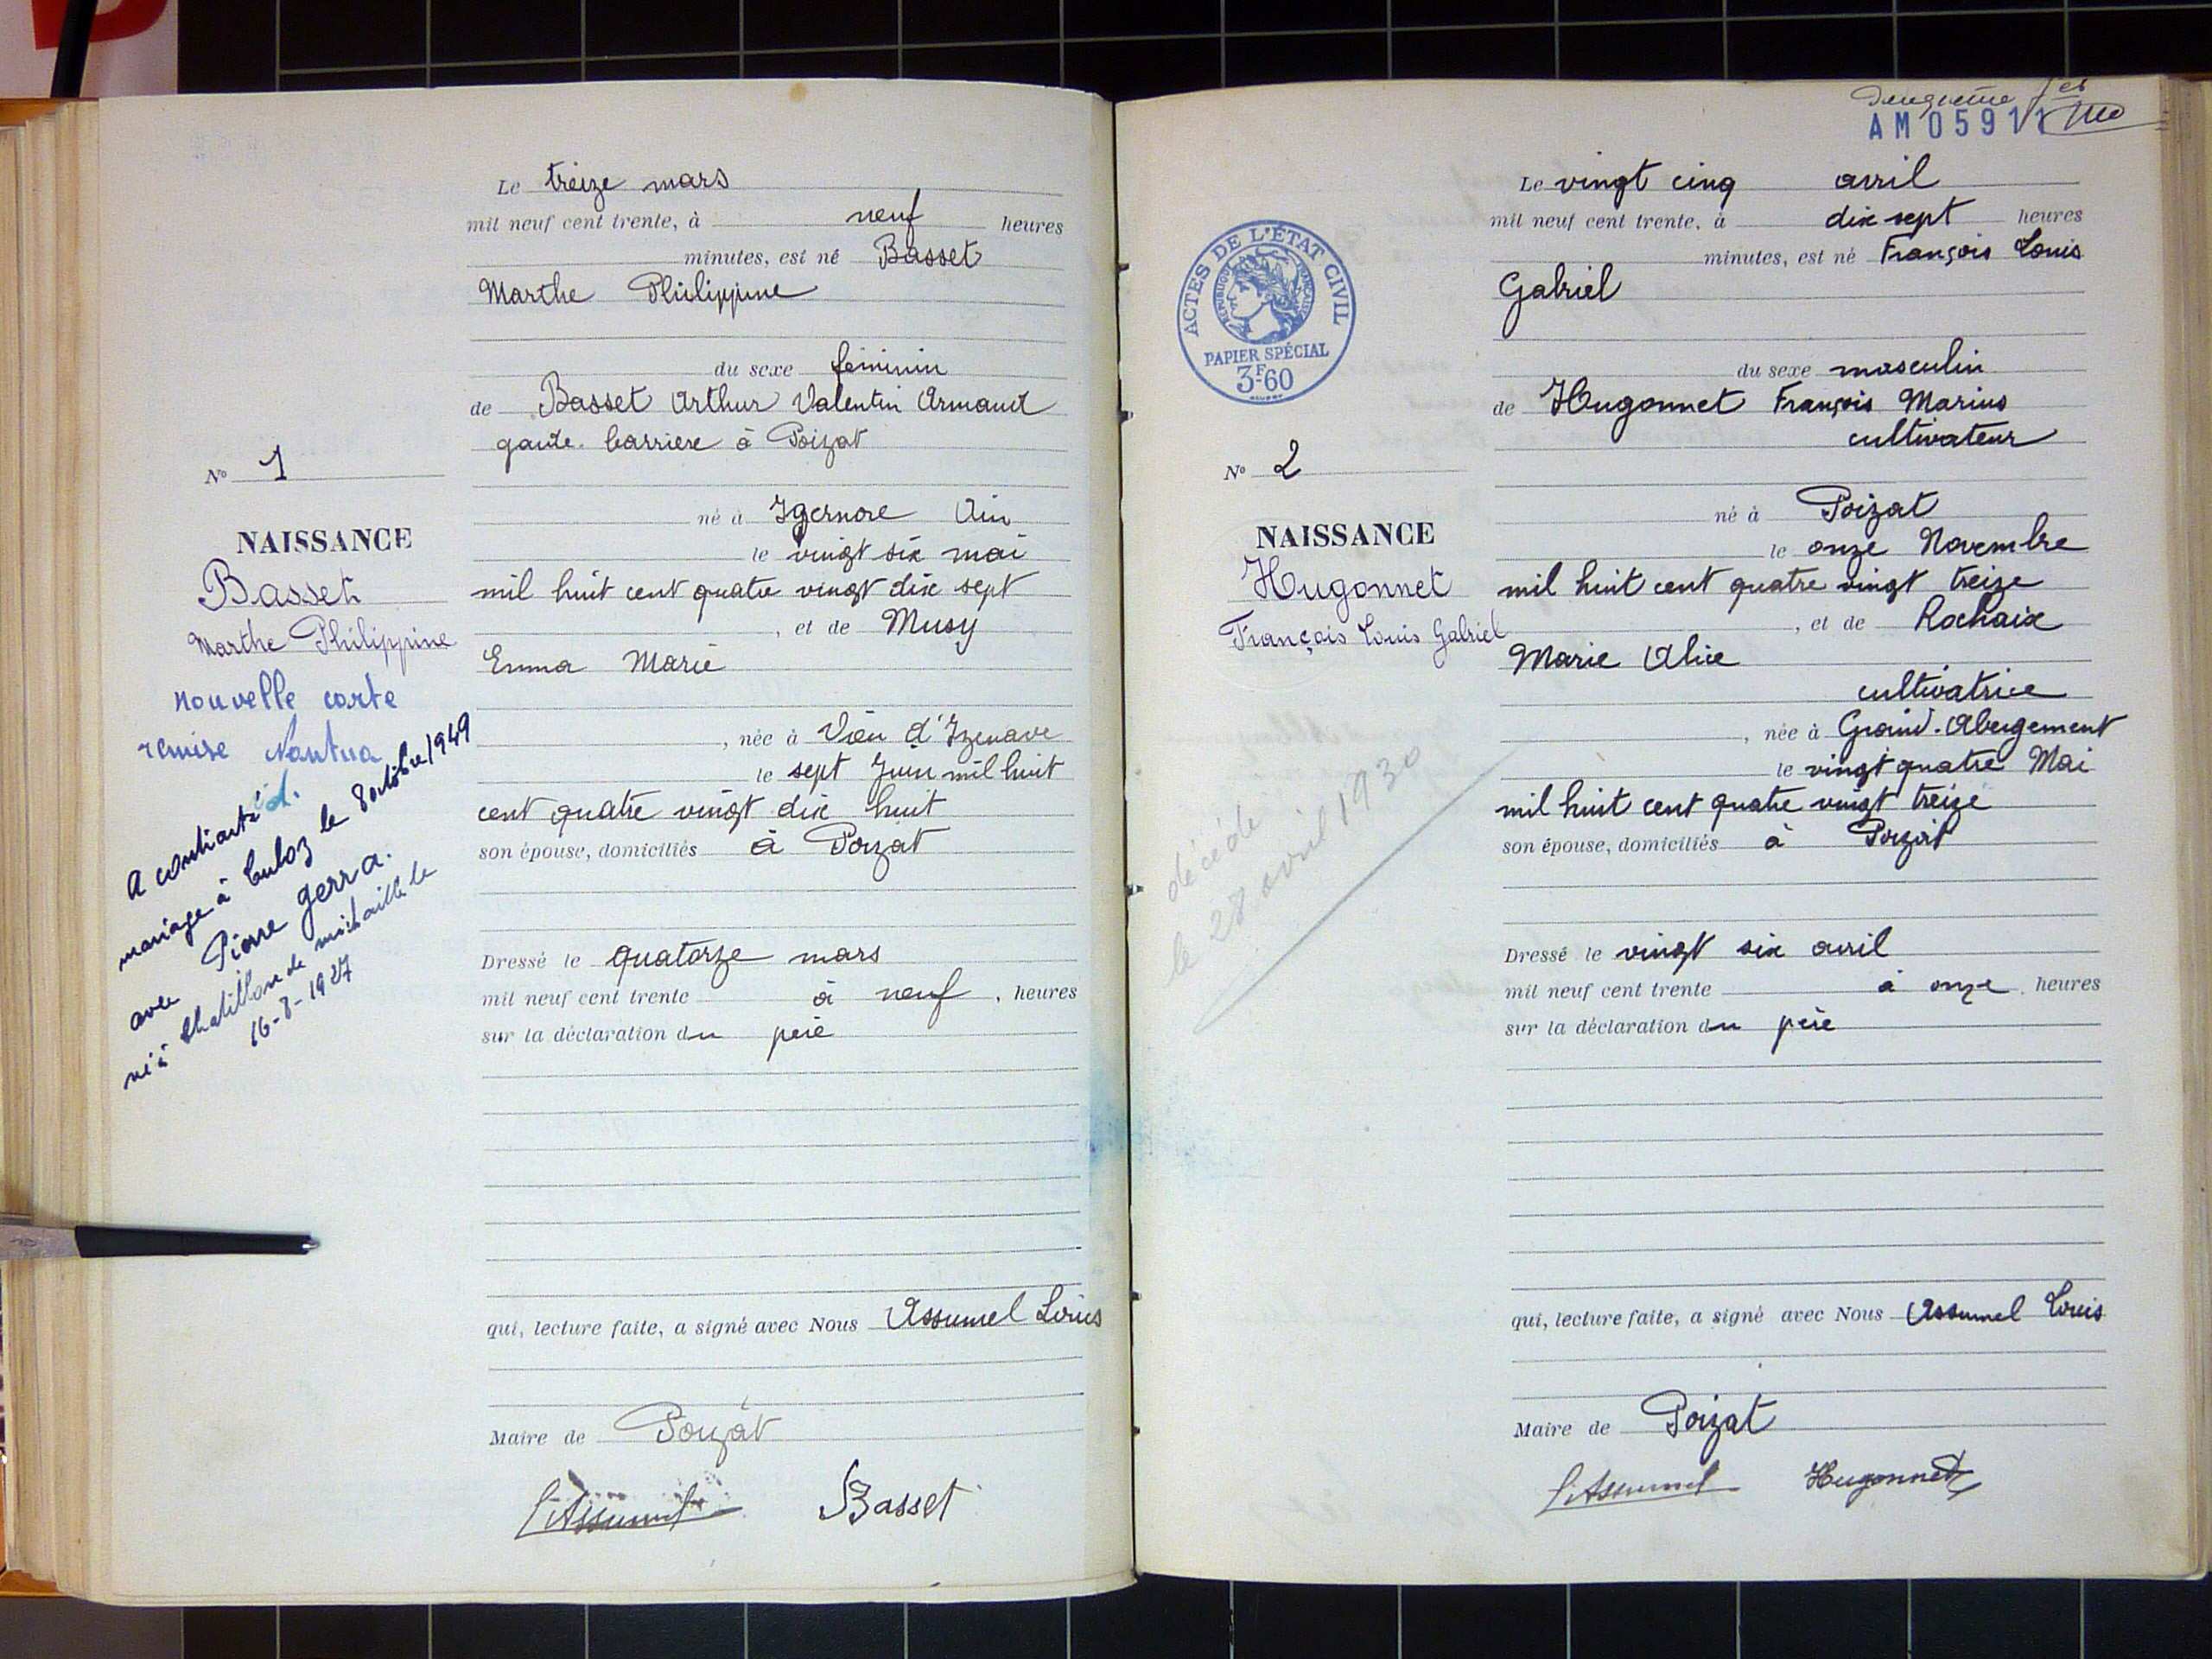 Le treize mars
mil neuf cent trente, à neuf heures
minutes, est né Basset
Marthe Philippine
du sexe féminin
de Basset Arthur Valentin Armand
garde-barrière à Poizat
né à Izernore Ain
le vingt six mai
mil huit cent quatre vingt dix sept
, et de Musy
Emma Marie
, née à Vieu d'Izenave
le sept Juin mil huit
cent quatre vingt dix huit
son épouse, domiciliés à Poizat
Dressé le quatorze mars
mil neuf cent trente à neuf, heures
sur la déclaration du père
qui, lecture faite, a signé avec Nous Assumel Louis
Maire de Poizat
L Assumel Basset
No 1
NAISSANCE
Basset
Marthe Philippine
Nouvelle carte
remise Nantua
A contracté
mariage à Culoz le 8 octobre 1949
avec Pierre Gerra.
né à Chatillon de michaille le
16-8-1927
AM 05911
Le vingt cinq avril
mil neuf cent trente, à dix sept heures
minutes, est né François Louis
Gabriel
du sexe masculin
de Hugonnet François Marius
cultivateur
né à Poizat
le onze Novembre
mil huit cent quatre vingt treize
, et de Rochaix
Marie Alice
cultivatrice
, née à Grand-Abergement
le vingt quatre Mai
mil huit cent quatre vingt treize
son épouse, domiciliés à Poizat
Dressé le vingt six avril
mil neuf cent trente à onze heures
sur la déclaration du père
qui, lecture faite, a signé avec Nous Assumel Louis
Maire de Poizat
L Assumel Hugonnet
ACTES DE L'ÉTAT CIVIL
RÉPUBLIQUE FRANÇAISE
PAPIER SPÉCIAL
3F60
No 2
NAISSANCE
Hugonnet
François Louis Gabriel
décédé
le 28 avril 1930